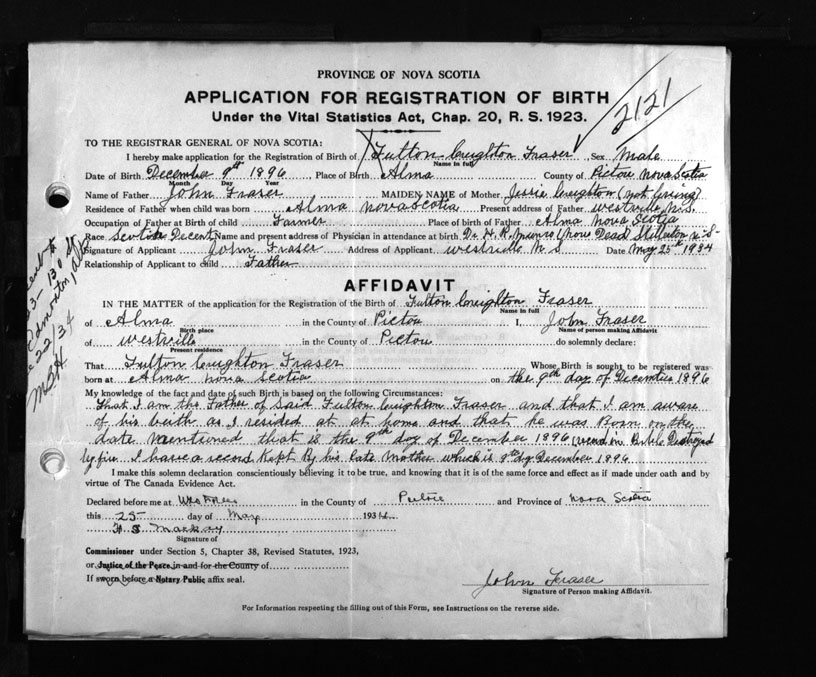 PROVINCE OF NOVA SCOTIA
APPLICATION FOR REGISTRATION OF BIRTH
Under the Vital Statistics Act, Chap. 20, R. S. 1923.
2121
TO THE REGISTRAR GENERAL OF NOVA SCOTIA:
I hereby make application for the Registration of Birth of Fulton Creighton Fraser, Sex Male
Name in full
Date of Birth December 9th 1896 Place of Birth Alma County of Pictou Nova Scotia
Month Day Year
Name of Father John Fraser MAIDEN NAME of Mother Jessie Creighton (not living)
Residence of Father when child was born Alma Nova Scotia Present address of Father Westville N.S.
Occupation of Father at Birth of child Farmer Place of birth of Father Alma Nova Scotia
Race Scotch Decent Name and present address of Physician in attendance at birth Dr. H. K. Munro (now Dead) Stellarton N-S-
Signature of Applicant John Fraser Address of Applicant Westville N S Date May 25th 1934
Relationship of Applicant to child Father
130 St
Edmonton, Alta
22/34
MBH
AFFIDAVIT
IN THE MATTER of the application for the Registration of the Birth of Fulton Creighton Fraser
Name in full
of Alma in the County of Pictou I, John Fraser
Birth place Name of person making Affidavit
of Westville in the County of Pictou do solemnly declare:
Present residence
That Fulton Creighton Fraser Whose Birth is sought to be registered was
born at Alma Nova Scotia on the 9th day of December 1896
My knowledge of the fact and date of such Birth is based on the following Circumstances:
That I am the Father of Said Fulton Creighton Fraser and that I am aware
of his birth as I resided at at home and that he was Born on the
date mentioned that is the 9th day of December 1896 (record in Bible Destroyed
by fire I have a record Kept By his late Mother which is 9th day December 1896
I make this solemn declaration conscientiously believing it to be true, and knowing that it is of the same force and effect as if made under oath and by
virtue of The Canada Evidence Act.
Declared before me at Westville in the County of Pictou and Province of Nova Scotia
this 25 day of May 1934
H S Mackay
Signature of
Commissioner under Section 5, Chapter 38, Revised Statutes, 1923,
or Justice of the Peace in and for the County of
If sworn before a Notary Public affix seal.
John Fraser
Signature of Person making Affidavit.
For Information respecting the filling out of this Form, see Instructions on the reverse side.